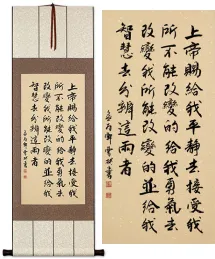 上帝賜給我平靜去接受我
所不能改變的給我勇氣去
改變我能改變的並給我
智慧去分辨這兩者
上帝賜給我平靜去接受我
所不能改變的給我勇氣去
改變我能改變的並給我
智慧去分辨這兩者